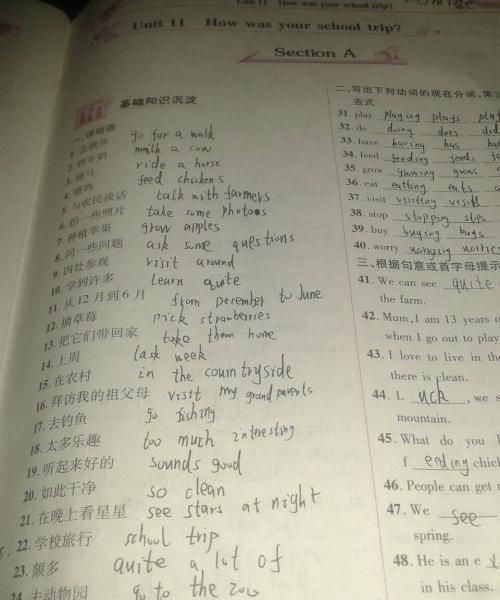 Unit 11 How was your school trip?
Unit 11 How was your school trip?
Section A
基础知识沉淀
一、译短语
1. 去散步 go for a walk
2. 挤牛奶 milk a cow
3. 骑马 ride a horse
4. 喂鸡 feed chickens
5. 与农民谈话 talk with farmers
6. 拍一些照片 take some photoos
7. 种植苹果 grow apples
8. 问一些问题 ask some questions
9. 四处参观 visit around
10. 学到许多 learn quite
11. 从12月到6月 from December to June
12. 摘草莓 pick strawberries
13. 把它们带回家 take them home
14. 上周 last week
15. 在农村 in the countryside
16. 拜访我的祖父母 visit my grandparents
17. 去钓鱼 go fishing
18. 太多乐趣 too much interesting
19. 听起来好的 sounds good
20. 如此干净 so clean
21. 在晚上看星星 see stars at night
22. 学校旅行 school trip
23. 颇多 quite a lot of
24. 去动物园 go to the zoo
二、写出下列动词的现在分词、第三
去式
31. play playing plays
32. do doing does did
33. have having has
34. feed feeding feeds
35. grow growing grows
36. eat eatting eats
37. visit visiting visits
38. stop stopping stops
39. buy buying buys
40. worry worrying worries
三、根据句意或首字母提示
41. We can see quite
the farm.
42. Mum, I am 13 years o
when I go out to play
43. I love to live in the
there is clean.
44. L uck , we s
mountain.
45. What do you l
f eeding chick
46. People can get
47. We see
spring.
48. He is an e x
in his class.